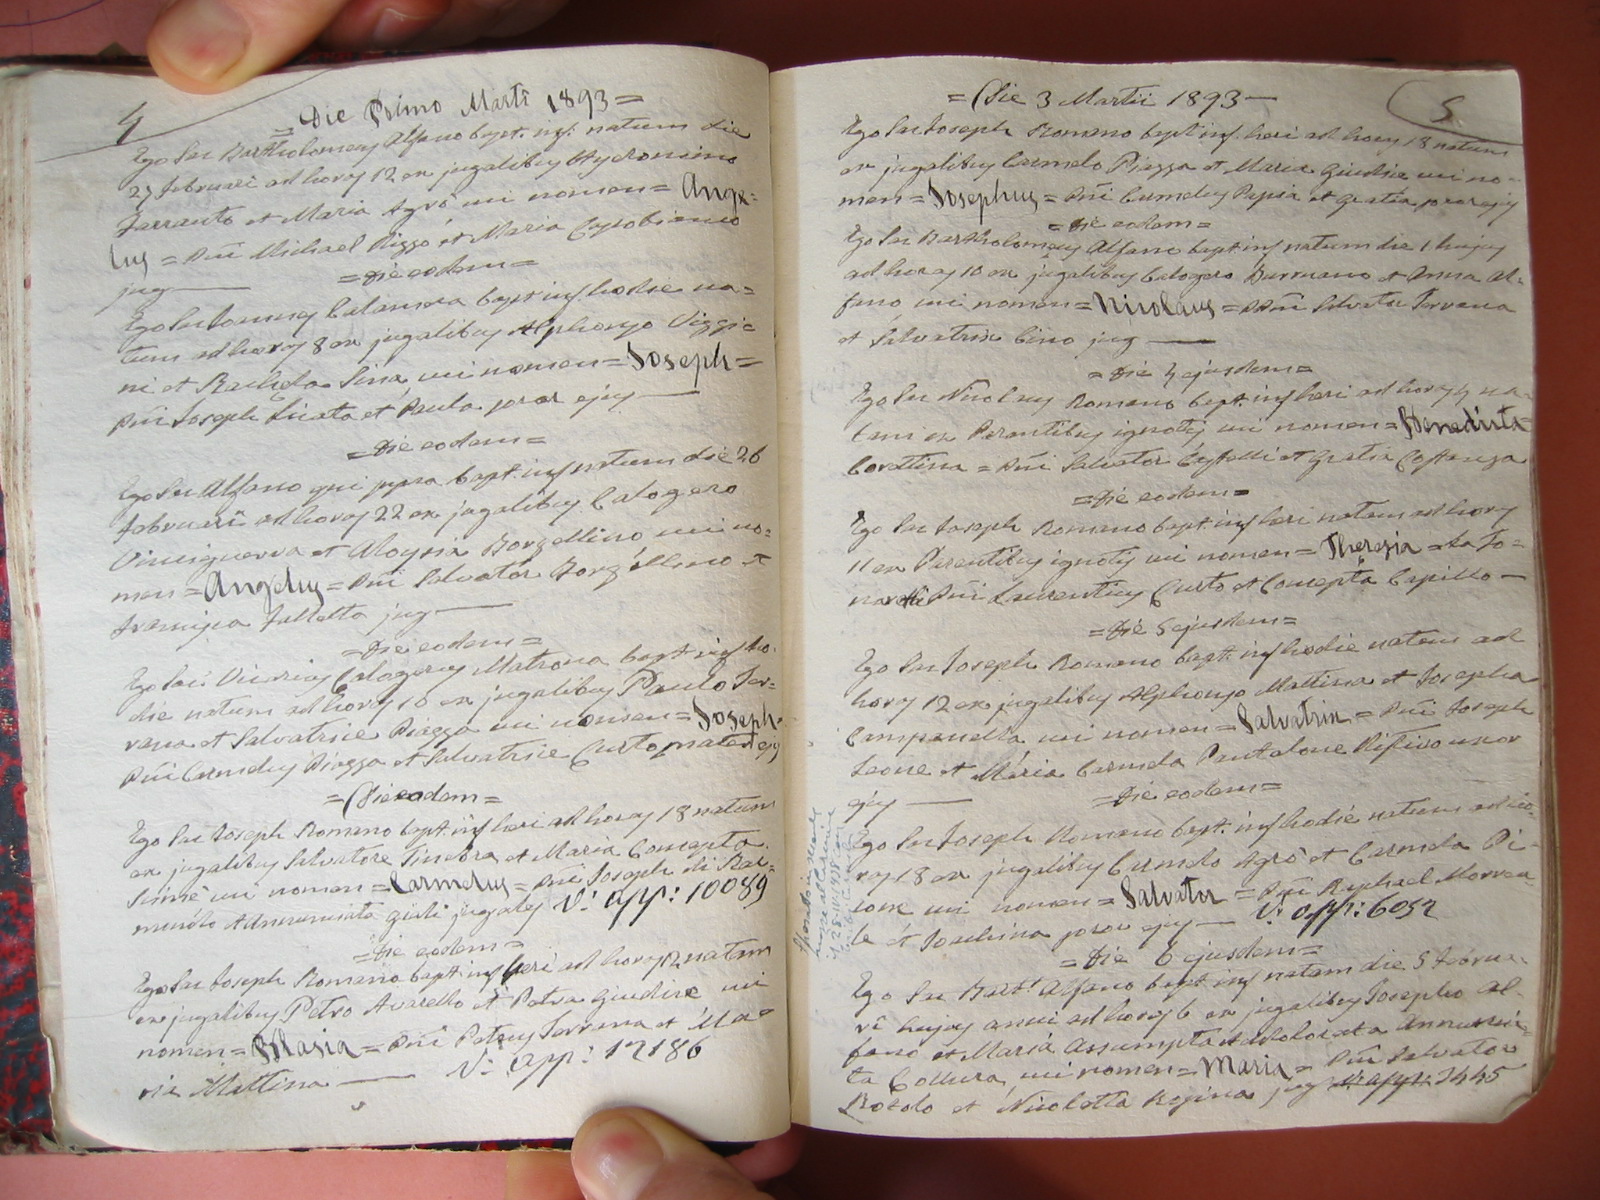 4
Die Primo Martî 1893=
Ego Sac Bartholomeus Alfano bapt. inf. natum die
27 Februari ad horas 12 ex jugalibus Hyeronimo
Farrauto et Maria Agrò cui nomen= Ange=
lus = PNi Michael Rizzo et Maria Capobianco
jug—
=Die eodem=
Ego Sac Calamera bapt inf hodie na=
tum ad horas 8 ex jugalibus Alphonso Viggia=
ni et Rachela Sina cui nomen= Joseph=
PNi Joseph Licata et Paula soror ejus—
=Die eodem=
Ego Sac Alfano qui supra bapt. inf natum die 26
Februarî ad horas 22 ex jugalibus Calogero
Vinciguerra et Aloysia Borzellino cui no=
men= Angelus =PNi Salvator Borzellino et
Francisca Falletta jug—
=Die eodem=
Ego Sac: Vicarius Calogerus Matrona bapt inf ho.
die natum ad horas 10 ex jugalibus Paulo Ter=
rana et Salvatrice Piazza cui nomen= Joseph=
PNi Carmelus Piazza et Salvatrice Curto mater ejus
=Die eodem=
Ego Sac Joseph Romano bapt. inf heri ad horas 18 natum
ex jugalibus Salvatore Ginebra et Maria Concepta
cui nomen= Carmelus = PNi Joseph di Bar=
Annunciata jugales V: app: 10089
=Die eodem=
Ego Sac Joseph Romano bapt inf heri ad horas 12 natam
ex jugalibus Petro Avarello et Petra Giudice cui
nomen= Maria = PNi Petrus Terrana et Ma=
ria Mattina — V: app: 12186
5.
=Die 3 Martii 1893—
Ego Sac Joseph Romano bapt inf heri ad horas 18 natum
ex jugalibus Carmelo Piazza et Maria Giudice cui no=
men= Josephus = PNi Carmelus Papia et Gratia soror ejus
=Die eodem=
Ego Sac Bartholomeus Alfano bapt inf natum die 1 hujus
ad horas 10 ex jugalibus Calogero Burruano et Anna Al=
fano cui nomen= Nicolaus = PNi Salvator Terrana
et Salvatrix Cino jug—
=Die 4 ejusdem=
Ego Sac Nicolaus Romano bapt. inf heri ad horas 4 na=
tam ex Parentibus ignotis cui nomen= Benedicta
Corallina = PNi Salvator Castelli et Gratia Costanza
=Die eodem=
Ego Sac Joseph Romano bapt inf heri natam ad horas
11 ex Parentibus ignotis cui nomen= Theresia =
PNi Laurentius Curto et Concepta Capillo—
=Die 5 ejusdem=
Ego Sac Joseph Romano bapt. inf hodie natam ad
horas 12 ex jugalibus Alphonso Mattina et Josepha
Campanella cui nomen= Salvatrix = PNi Joseph
Leone et Maria Carmela Pantalone Rifisio uxor
ejus —
=Die eodem=
Ego Sac Joseph Romano bapt. inf hodie natum ad ho=
ras 13 ex jugalibus Carmelo Agrò et Carmela Pi=
cone cui nomen= Salvator = PNi Raphael Morrea=
le et Josephina soror ejus — V: app: 6052
=Die 6 ejusdem=
Ego Sac Bart: Alfano bapt inf natam die 5 Februa=
rî hujus anni ad horas 6 ex jugalibus Josepho Al=
fano et Maria Assumpta Addolorata Annuncia=
ta Collura cui nomen= Maria = PNi Salvator
Rotolo et Nicoletta Regina jug V: app: 3445